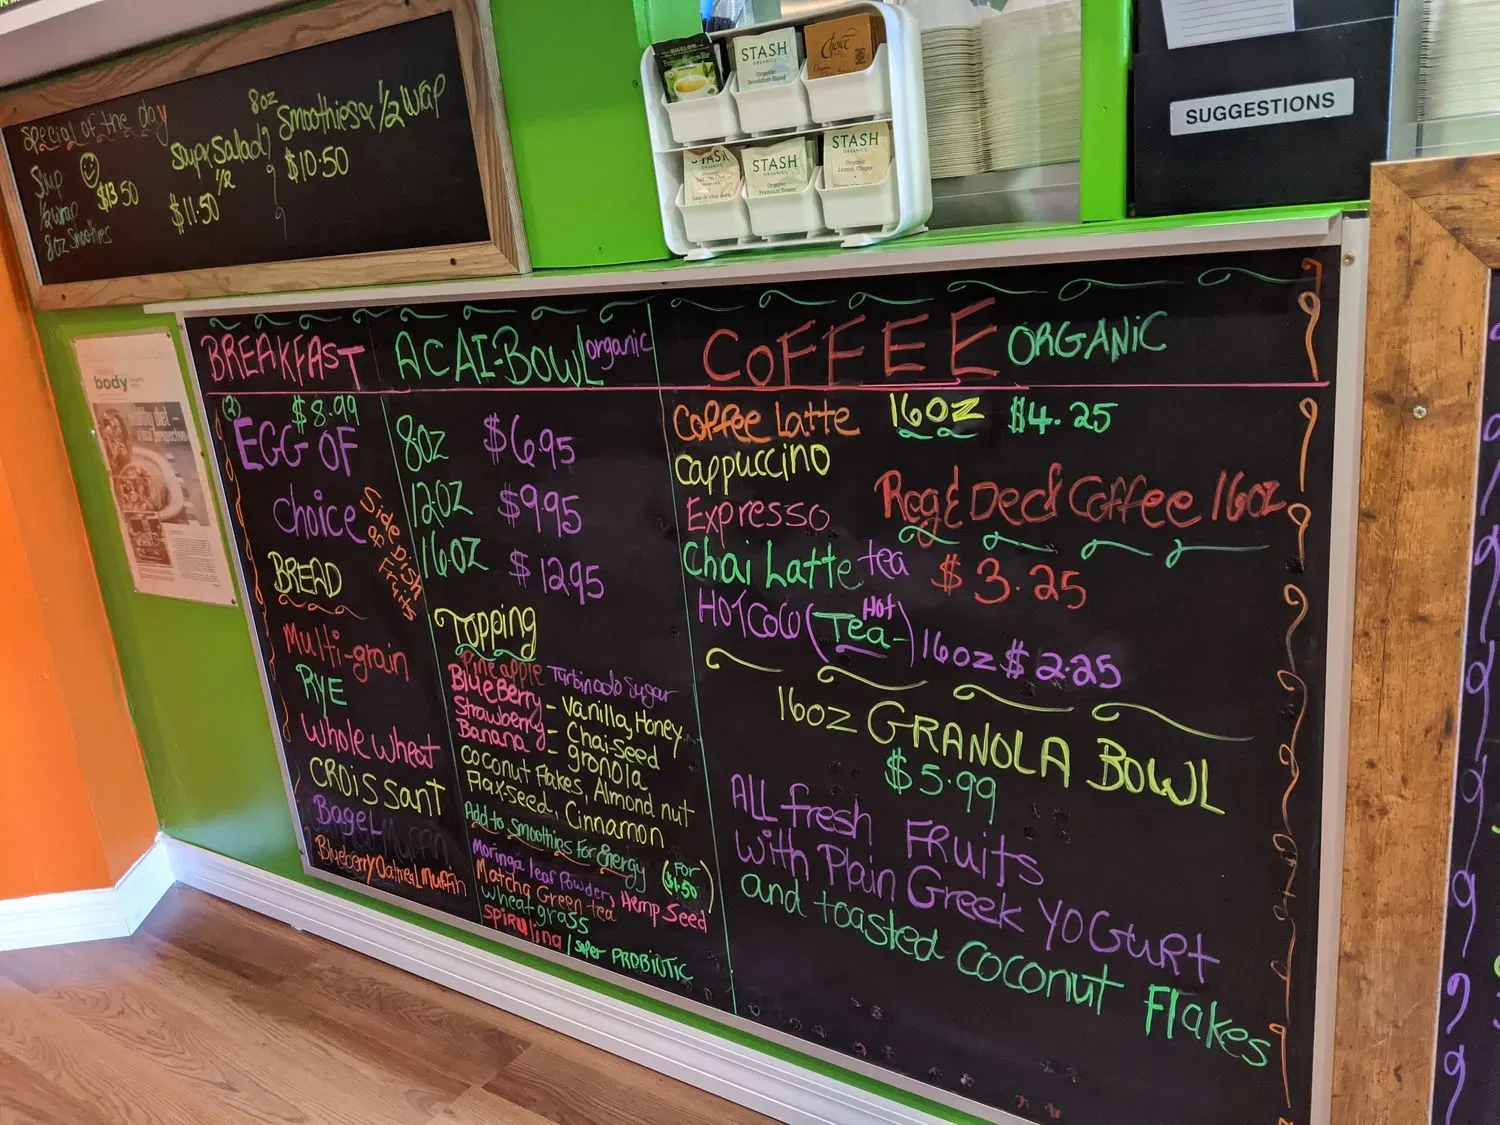 special of the day
Soup
1/2 wrap
8oz Smoothies
$13.50
Soup & Salad
1/2
$11.50
8oz
Smoothies & 1/2 wrap
$10.50
STASH
ORGANICS
Organic
Breakfast Blend
Choice
STASH
STASH
ORGANICS
Organic
Premium Green
STASH
ORGANICS
Organic
Lemon Ginger
SUGGESTIONS
body
BREAKFAST
(2) $8.99
EGG OF
choice
Side Dish
of Fruits
BREAD
Multi-grain
RYE
Whole wheat
CROissanT
BageL Muffin
Blueberry Oatmeal Muffin
ACAI-BOWL organic
8oz $6.95
12oz $9.95
16oz $12.95
Topping
Pineapple Turbinado Sugar
BlueBerry - Vanilla, Honey
Strawberry - Chai-seed
Banana - gronola
coconut Flakes, Almond nut
Flax-seed, Cinnamon
Add to Smoothies For Energy (For $1.50)
Moringa leaf Powder, Hemp Seed
Matcha Green tea
wheat grass
spirulina / super PROBIOTIC
COFFEE ORGANIC
Coffee Latte 16oz $4.25
Cappuccino
Expresso
Reg & Decf Coffee 16oz
$3.25
Chai Latte tea
HOT COCO (Hot Tea-) 16oz $2.25
16oz GRANOLA BOWL
$5.99
ALL fresh FRuits
with Plain Greek YOGurt
and toasted Coconut Flakes